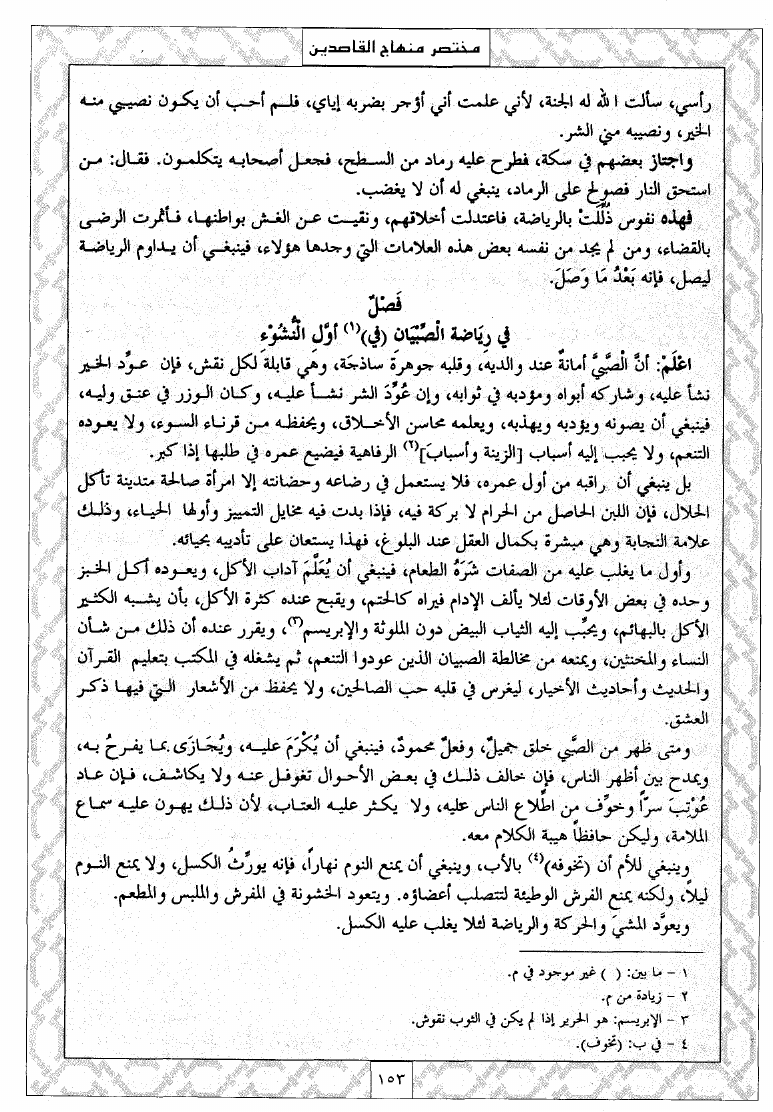 مختصر منهاج القاصدين
رأسي، سألت الله له الجنة، لأني علمت أني أؤجر بضربه إياي، فلم أحب أن يكون نصيبي منه
الخير، ونصيبه مني الشر.
واجتاز بعضهم في سكة، فطرح عليه رماد من السطح، فجعل أصحابه يتكلمون. فقال: من
استحق النار فصولح على الرماد، ينبغي له أن لا يغضب.
فهذه نفوس ذُلِّلَتْ بالرياضة، فاعتدلت أخلاقهم، ونقيت عن الغش بواطنها، فأثمرت الرضى
بالقضاء، ومن لم يجد من نفسه بعض هذه العلامات التي وجدها هؤلاء، فينبغي أن يداوم الرياضة
ليصل، فإنه بَعْدُ مَا وَصَلَ.
فَصْلٌ
في رِيَاضة الصِّبْيَان (في)(١) أوَّلِ النُّشُوْءِ
اعْلَمْ: أنَّ الْصَّبيَّ أمانةٌ عند والديه، وقلبه جوهرة ساذجَة، وهي قابلة لكل نقش، فإن عوِّد الخير
نشأ عليه، وشاركه أبواه ومؤدبه في ثوابه، وإن عُوِّدَ الشر نشأ عليه، وكان الوزر في عنق وليه،
فينبغي أن يصونه ويؤدبه ويهذبه، ويعلمه محاسن الأخلاق، ويحفظه من قرناء السوء، ولا يعوده
التنعم، ولا يحبب إليه أسباب [الزينة وأسباب](٢) الرفاهية فيضيع عمره في طلبها إذا كبر.
بل ينبغي أن يراقبه من أول عمره، فلا يستعمل في رضاعه وحضانته إلا امرأة صالحة متدينة تأكل
الحلال، فإن اللبن الحاصل من الحرام لا بركة فيه، فإذا بدت فيه مخايل التمييز وأولها الحياء، وذلك
علامة النجابة وهي مبشرة بكمال العقل عند البلوغ، فهذا يستعان على تأديبه بحيائه.
وأول ما يغلب عليه من الصفات شَرَهُ الطعام، فينبغي أن يُعَلَّمَ آداب الأكل، ويعوده أكل الخبز
وحده في بعض الأوقات لئلا يألف الإدام فيراه كالحتم، ويقبح عنده كثرة الأكل، بأن يشبه الكثير
الأكل بالبهائم، ويحبِّب إليه الثياب البيض دون الملوثة والإبريسم(٣)، ويقرر عنده أن ذلك من شأن
النساء والمخنثين، ويمنعه من مخالطة الصبيان الذين عودوا التنعم، ثم يشغله في المكتب بتعليم القرآن
والحديث وأحاديث الأخيار، ليغرس في قلبه حب الصالحين، ولا يحفظ من الأشعار التي فيها ذكر
العشق.
ومتى ظهر من الصَّبي خلق جميلٌ، وفعلٌ محمودٌ، فينبغي أن يُكْرَمَ عليه، ويُجَازَى بما يفرحُ به،
ويمدح بين أظهر الناس، فإن خالف ذلك في بعض الأحوال تغوفل عنه ولا يكاشف، فإن عاد
عُوْتِبَ سرّاً وخوِّف من اطِّلاع الناس عليه، ولا يكثر عليه العتاب، لأن ذلك يهون عليه سماع
الملامة، وليكن حافظاً هيبة الكلام معه.
وينبغي للأم أن (تخوفه)(٤) بالأب، وينبغي أن يمنع النوم نهاراً، فإنه يورِّثُ الكسل، ولا يمنع النوم
ليلاً، ولكنه يمنع الفرش الوطيئة لتتصلب أعضاؤه. ويتعود الخشونة في المفرش والملبس والمطعم.
ويعوَّد المشيَ والحركة والرياضة لئلا يغلب عليه الكسل.
١ - ما بين: ( ) غير موجود في م.
٢ - زيادة من م.
٣ - الإبريسم: هو الحرير إذا لم يكن في الثوب نقوش.
٤ - في ب: (تخوف).
١٥٣